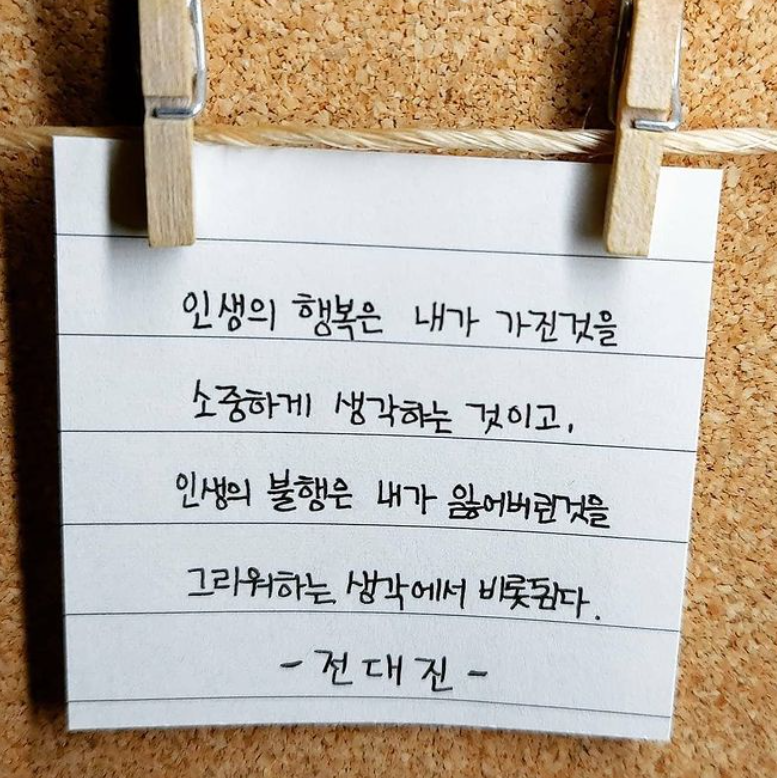 인생의 행복은 내가 가진것을
소중하게 생각하는 것이고,
인생의 불행은 내가 잃어버린것을
그리워하는 생각에서 비롯된다.
- 전대진 -